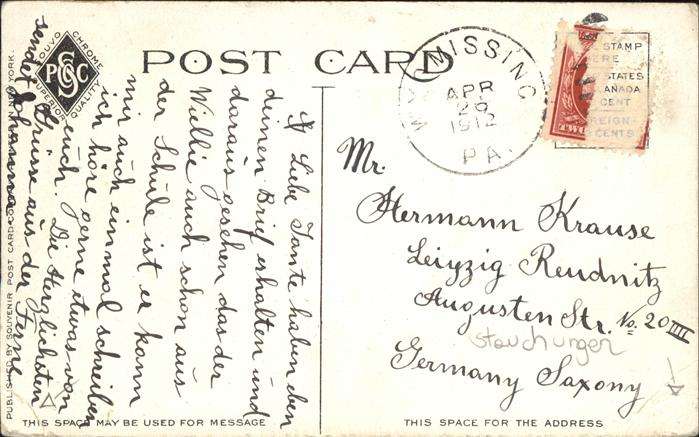 POST CARD
DUVO CHROME
PSC&C
SUPERIOR QUALITY
WYOMISSING
APR
26
1912
PA.
STAMP
HERE
STATES
CANADA
CENT
FOREIGN
CENTS
TWO
Liebe Tante haben den
deinen Brief erhalten und
daraus gesehen das der
Willie auch schon aus
der Schule ist er kann
mir auch einmal schreiben
ich höre gerne etwas von
euch. Die Herzlichsten
Grüsse aus der Ferne
sendet
Mr.
Hermann Krause
Leipzig Reudnitz
Augusten Str. No. 20 III
Germany Saxony
THIS SPACE MAY BE USED FOR MESSAGE
THIS SPACE FOR THE ADDRESS
PUBLISHED BY SOUVENIR POST CARD CO. NEW YORK.